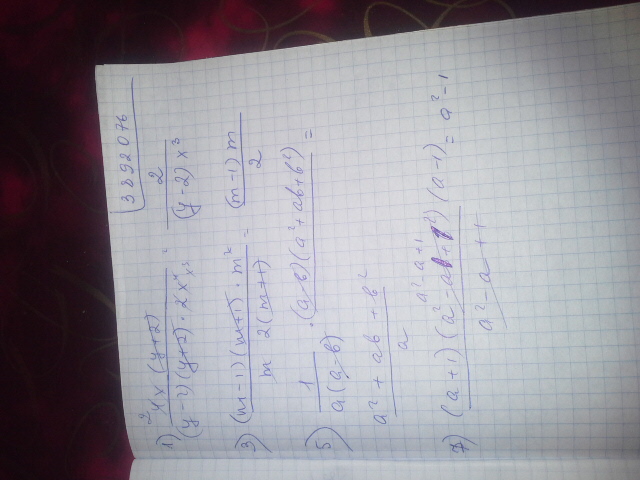 3892076
1) 4x(y+2) / (y-2)(y+2)·2x⁴ = 2 / (y-2)x³
3) (m-1)(m+1)·m² / m 2(m+1) = (m-1)m / 2
5) 1 / a(a-b) · (a-b)(a²+ab+b²) =
a²+ab+b² / a
a²-a+1
7) (a+1)(a²-a+1)(a-1) / a²-a+1 = a²-1